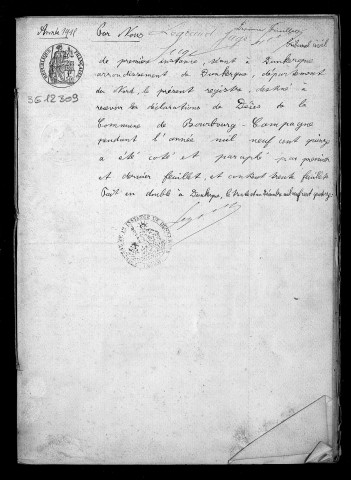 Année 1911
Par Nous
Juge
tribunal civil
de première instance, séant à Dunkerque
arrondissement de Dunkerque, département
du Nord, le présent registre, destiné à
recevoir les déclarations de Décès de la
Commune de Bourbourg-Campagne
pendant l'année mil neuf cent onze
a été coté et paraphé par premier
et dernier feuillet, et contient trente feuillets
Fait en double à Dunkerque, le
3612309